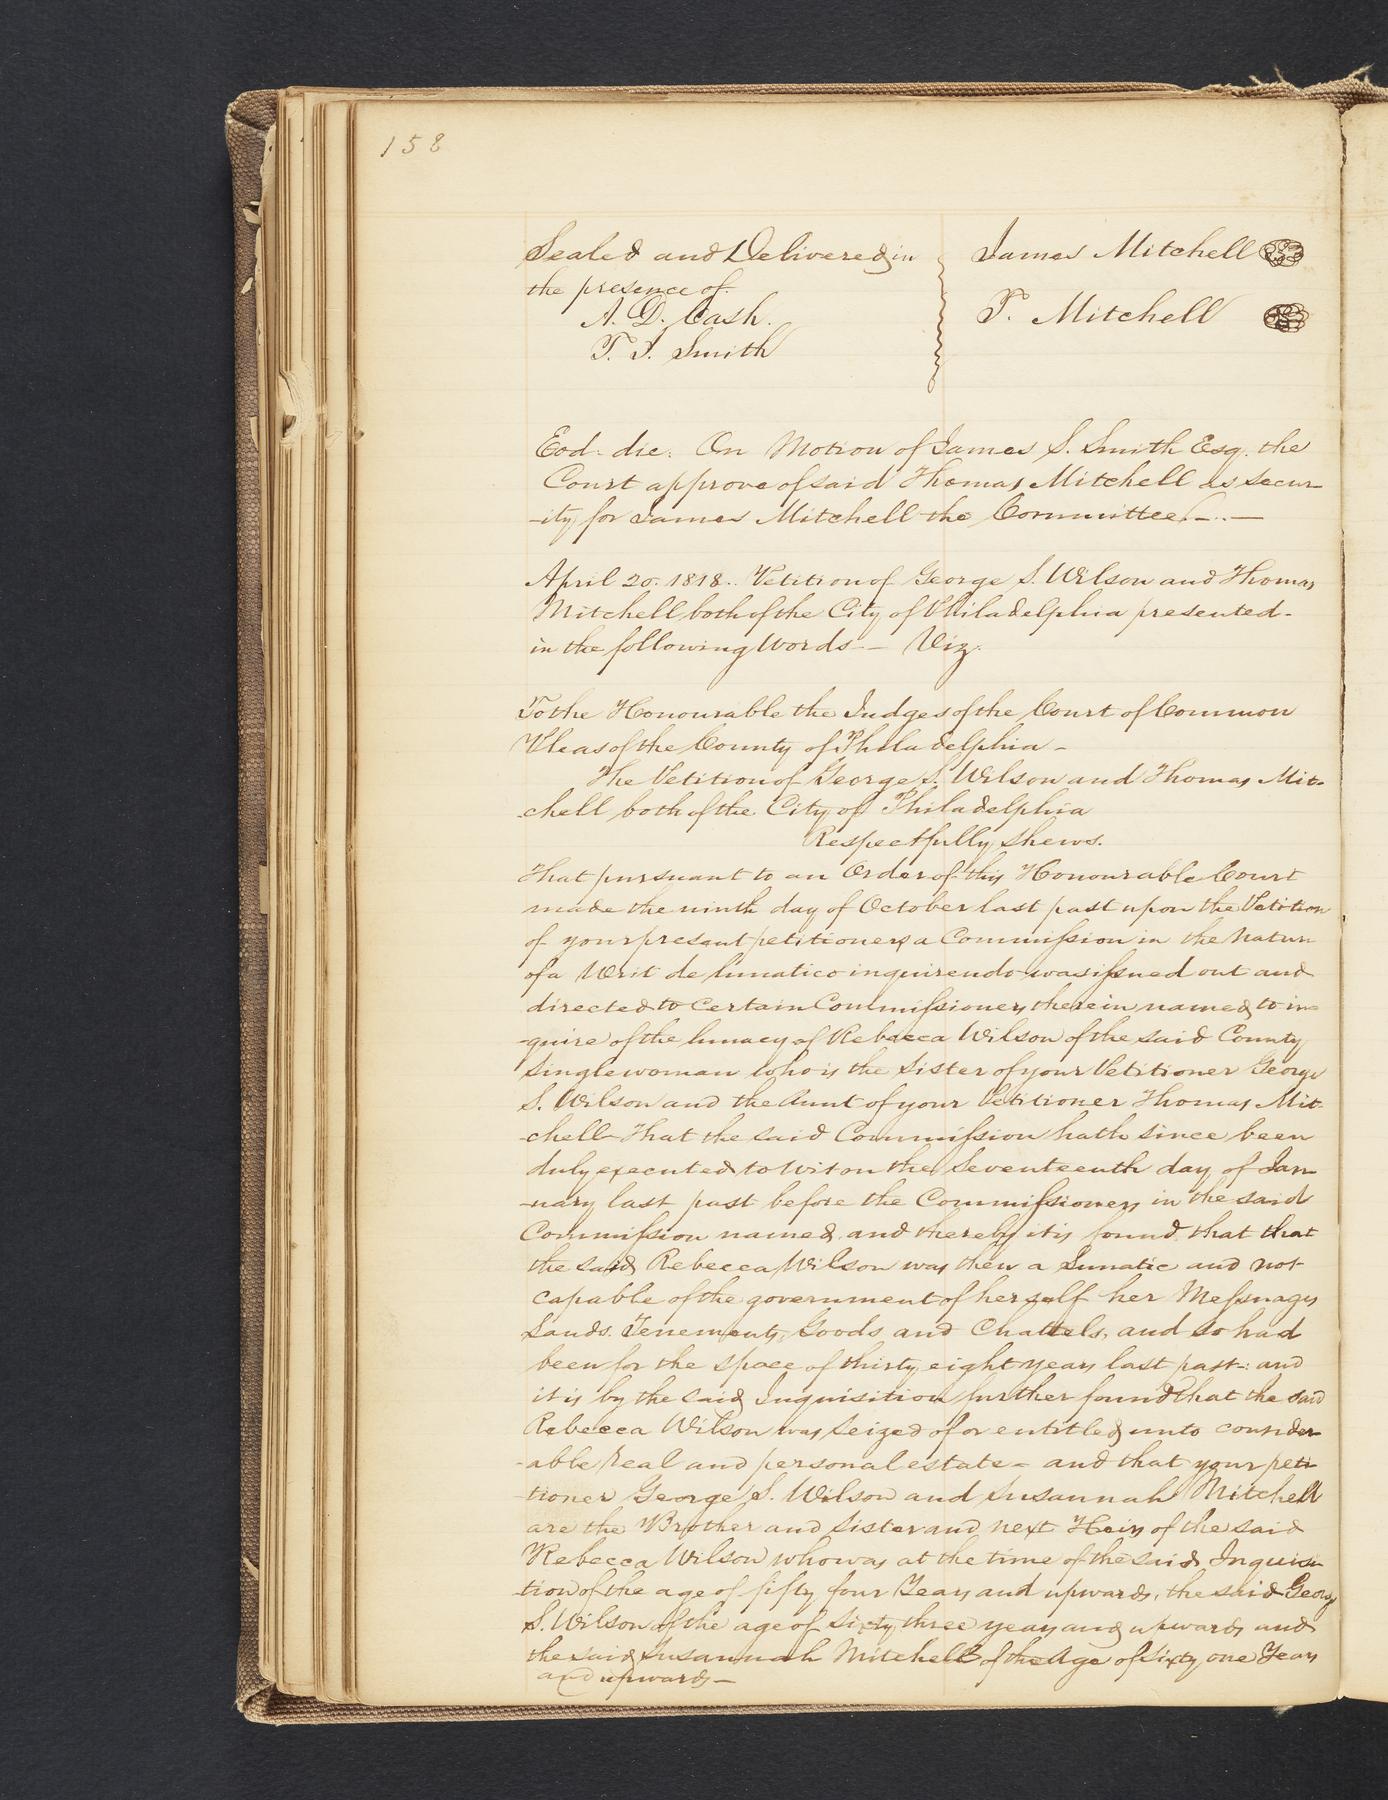 158
Sealed and Delivered in
the presence of
A. D. Cash.
T. J. Smith
James Mitchell
T. Mitchell
Eod. die. On Motion of James S. Smith Esq. the
Court approve of said Thomas Mitchell as secur-
-ity for James Mitchell the Committee.
April 20. 1818. Petition of George S. Wilson and Thomas
Mitchell both of the City of Philadelphia presented-
in the following Words — Viz.
To the Honourable the Judges of the Court of Common
Pleas of the County of Philadelphia -
The Petition of George S. Wilson and Thomas Mit-
-chell both of the City of Philadelphia
Respectfully shews.
That pursuant to an Order of this Honourable Court
made the ninth day of October last past upon the Petition
of your present petitioners a Commission in the Nature
of a Writ de lunatico inquirendo was issued out and
directed to Certain Commissioners therein named to in-
-quire of the lunacy of Rebecca Wilson of the said County
Singlewoman who is the Sister of your Petitioner George
S. Wilson and the Aunt of your Petitioner Thomas Mit-
-chell That the said Commission hath since been
duly executed to wit on the Seventeenth day of Jan-
-uary last past before the Commissioners in the said
Commission named, and thereby it is found that that
the said Rebecca Wilson was then a Lunatic and not
capable of the government of herself her Messuages
Lands. Tenements, Goods and Chattels, and so had
been for the space of thirty eight years last past: and
it is by the said Inquisition further found that the said
Rebecca Wilson was Seized of or entitled unto consider-
-able real and personal estate - and that your peti-
-tioner George S. Wilson and Susannah Mitchell
are the Brother and Sister and next Heirs of the said
Rebecca Wilson who was at the time of the said Inquisi-
-tion of the age of fifty four Years and upwards, the said George
S. Wilson of the age of Sixty three years and upwards and
the said Susannah Mitchell of the Age of Sixty one Years
and upwards —